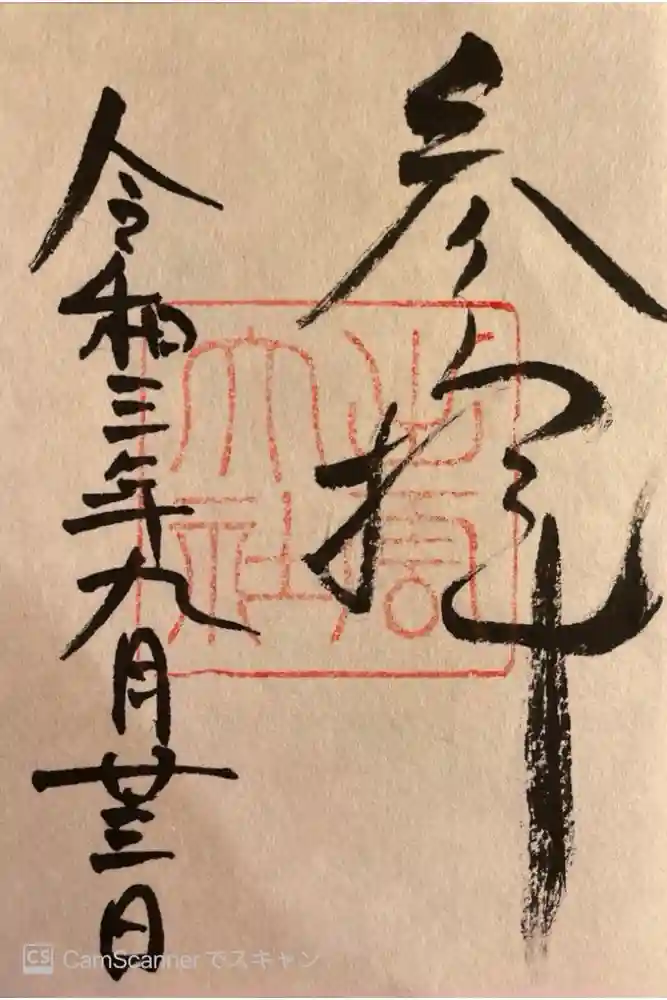 参拝
大社
令和三年九月廿三日
CS CamScanner でスキャン